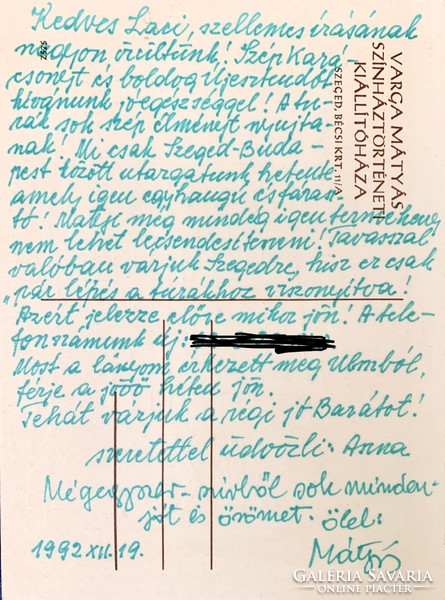 Kedves Laci, szellemes írásának
nagyon örültünk! Szép Kará
csonyt és boldog Újesztendőt
kívánunk jóegészséggel! A tú-
rák sok szép élményt nyujta-
nak! Mi csak Szeged-Buda-
pest között utazgatunk hetente
amely igen egyhangú és fárasz-
tó! Matyi még mindég igen tevékeny
nem lehet lecsendesíteni! Tavasszal
valóban várjuk Szegedre, hisz ez csak
"pár lépés a túrákhoz viszonyítva!
Azért jelezze előre mikor jön! A tele-
fonszámunk új:
Most a lányom érkezett meg Ulmból,
férje a jövő héten jön.
Tehát várjuk a régi jó Barátot!
szeretettel üdvözli: Anna
Mégegyszer - szívből sok minden-
jót és örömet. ölel:
1992 XII. 19. Mátyás
VARGA MÁTYÁS
SZÍNHÁZTÖRTÉNETI
KIÁLLÍTÓHÁZA
SZEGED, BÉCSI KRT. 11/A
GALERIA SAVARIA
ONLINE PIACTÉR